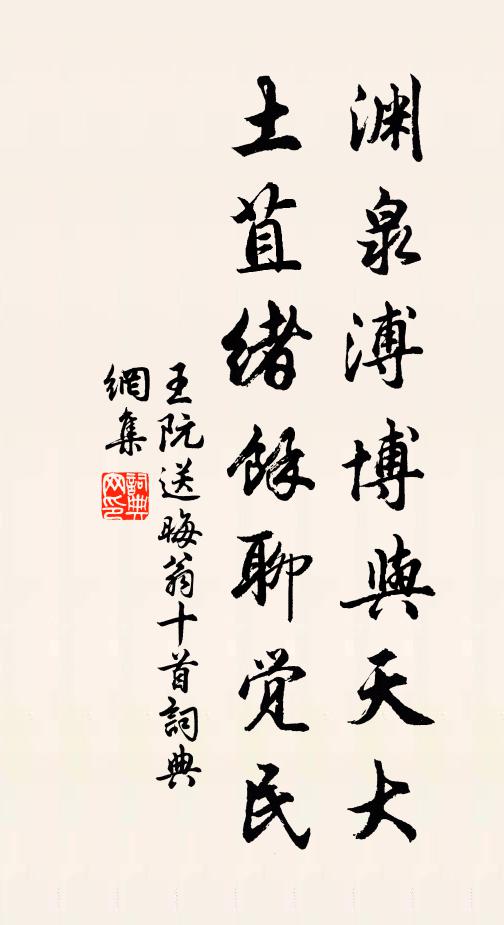 渊泉溥博與天大
土苴緒餘聊觉民
王阮送晦翁十首詞典
網集
詞典
网印